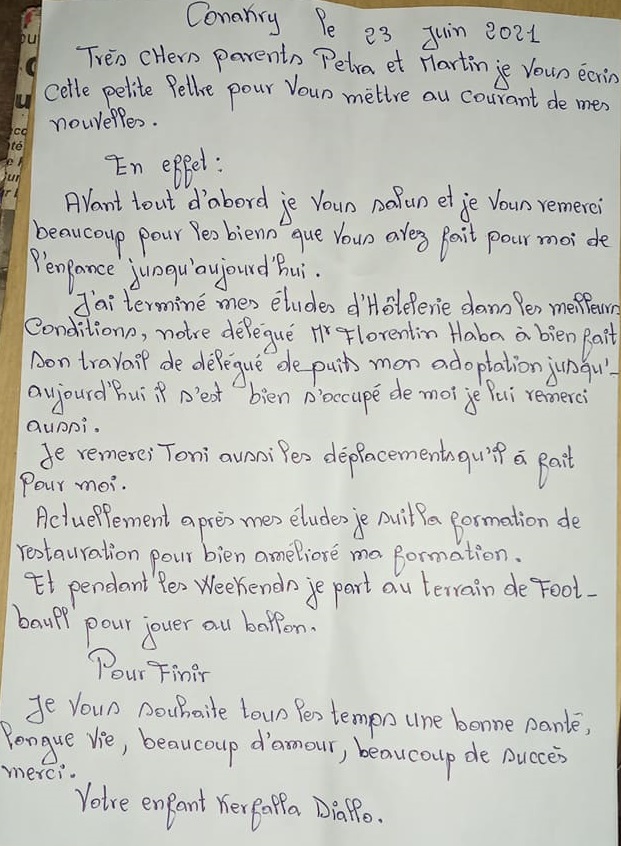 Conakry le 23 Juin 2021
Très cHers parents Petra et Martin je vous écris
cette petite lettre pour vous mëttre au courant de mes
nouvelles.
En effet :
AVant tout d'abord je vous salus et je vous remerci
beaucoup pour les biens que vous avez fait pour moi de
l'enfance jusqu'aujourd'hui.
J'ai terminé mes études d'Hôtelerie dans les meilleurs
Conditions, notre délégué Mr Florentin Haba à bien fait
son travail de délégué depuits mon adoptation jusqu'-
aujourd'hui il s'est bien s'occupé de moi je lui remerci
aussi.
Je remerci Toni aussi les déplacements qu'il à fait
Pour moi.
Actuellement après mes études je suit la formation de
restauration pour bien amélioré ma formation.
Et pendant les Weekends je part au terrain de Foot-
baull pour jouer au ballon.
Pour Finir
Je Vous souhaite tous les temps une bonne santé,
longue vie, beaucoup d'amour, beaucoup de succès
merci.
Votre enfant Kerfalla Diallo.